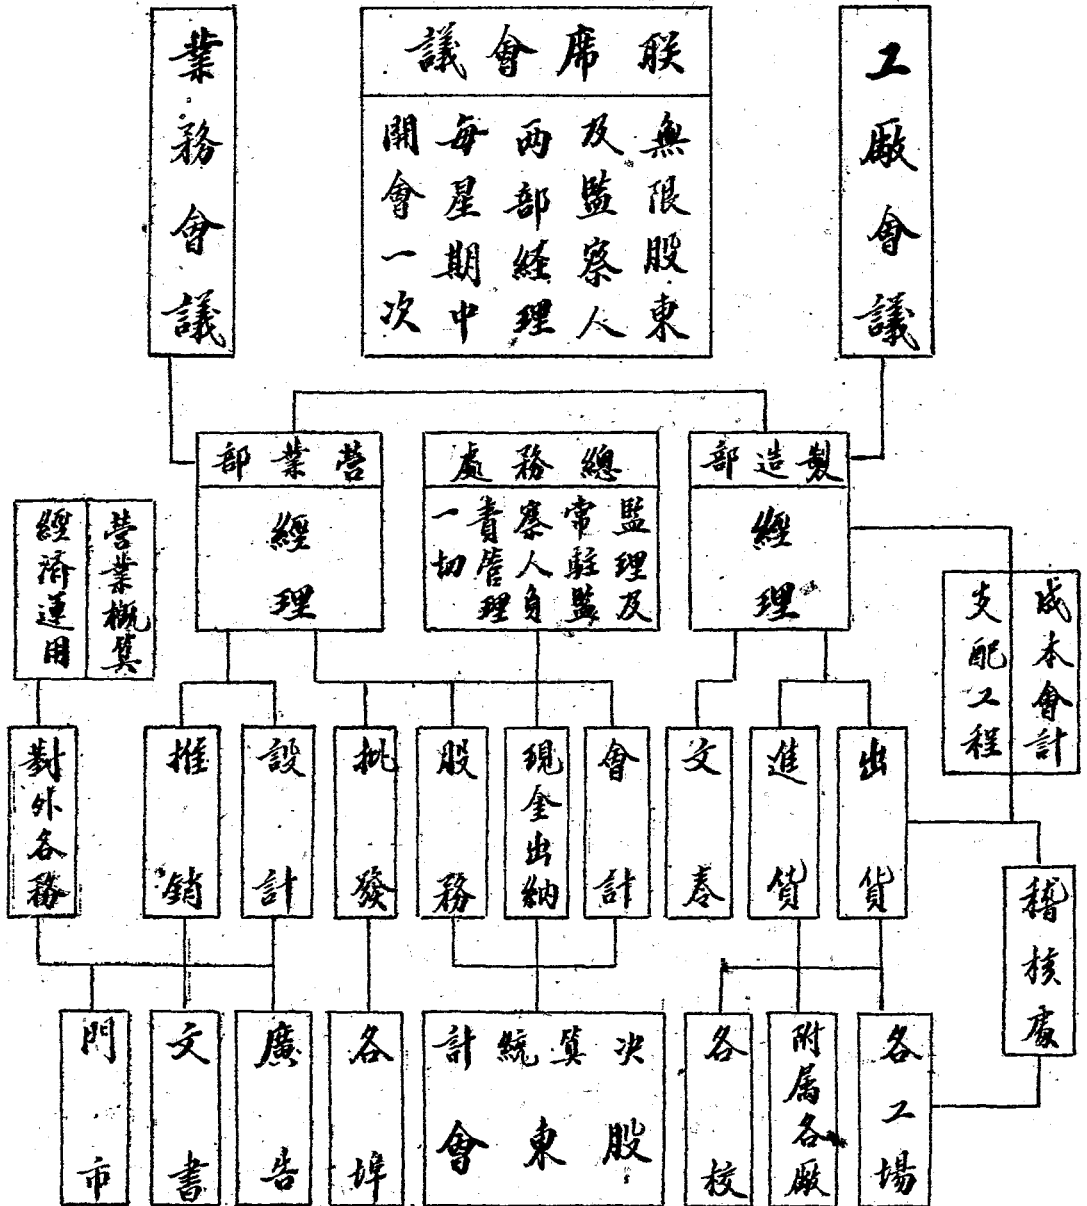 工廠會議
联席會議
無限股東
及監察人
两部経理
每星期中
開會一次
業務會議
製造部
經理
總務處
監理及
常駐監
察人負
責管理
一切
營業部
經理
成本會計
支配工程
營業概算
經済運用
出貨
進貨
文卷
會計
現金出納
股務
批發
設計
推銷
對外各務
稽核處
各工場
附属各廠
各校
决算統計
股東會
各埠
廣告
文書
門市